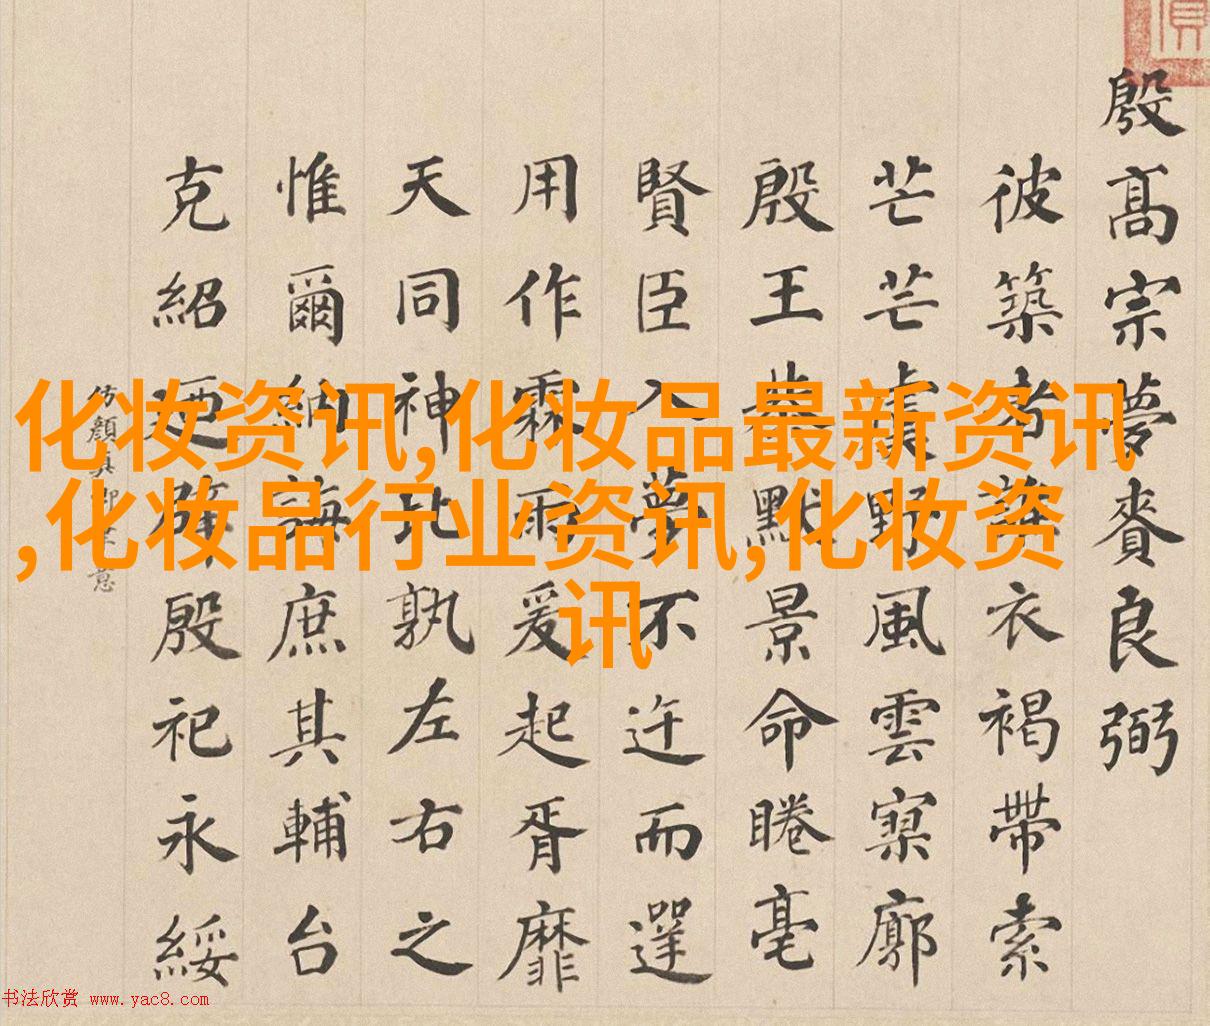 殷高宗夢賚良弼
彼築者誰衣褐帶索
芒芒虞野風雲寥廓
殷王恭默景命睠亳
賢臣入夢不迕而遻
用作霖雨爰起胥靡
天同神比孰左右之
惟爾納誨庶其輔台
克紹迺辟殷祀永綏
仿顏真卿意
化妆资讯,化妆品最新资讯
,化妆品行业资讯,化妆资
讯
书法欣赏 www.yac8.com